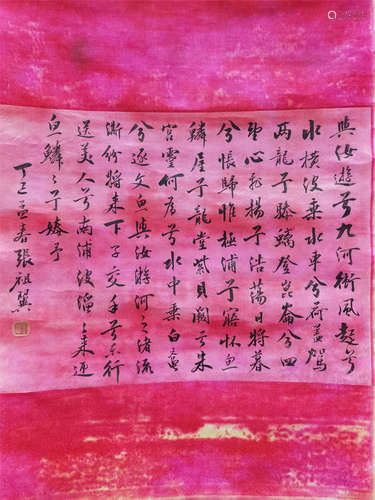 與汝遊兮九河衝風起兮
水橫波乘水車兮荷蓋駕
兩龍兮驂螭登崑崙兮四
望心飛揚兮浩蕩日將暮
兮悵歸惟極浦兮寤懷魚
鱗屋兮龍堂紫貝闕兮朱
宮靈何為兮水中乘白黿
兮逐文魚與汝游河之渚流
澌紛將來下子交手兮東行
送美人兮南浦波滔〻來迎
魚鱗〻兮媵予
丁 孟春張祖翼